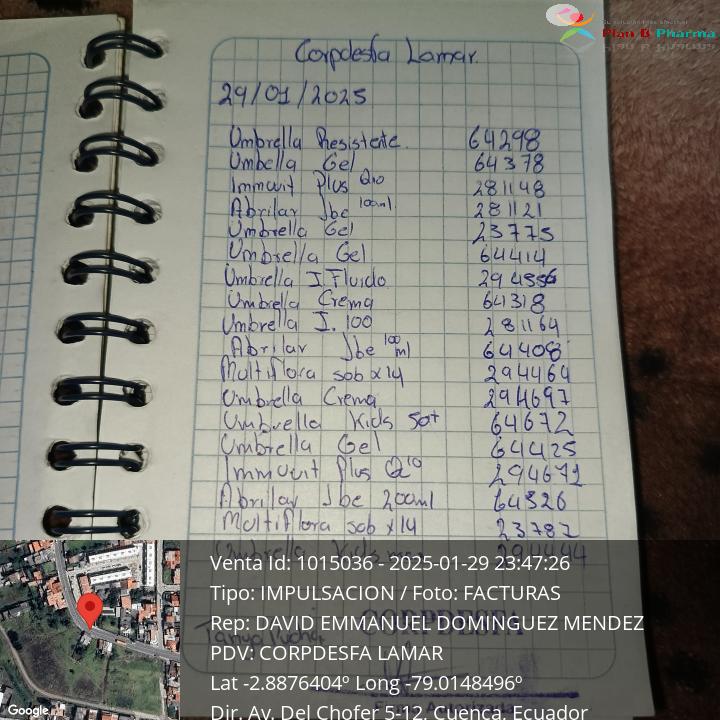 Plan B Pharma
Corpdesfa Lamar.
29/01/2025
Umbrella Resistente. 64298
Umbella Gel 64378
Immuvit Plus Q10 281148
Abrilar Jbe 100ml. 281121
Umbrella Gel 23775
Umbrella Gel 64414
Umbrella I. Fluido 294556
Umbrella Crema 64318
Umbrella I. 100 281164
Abrilar Jbe 100 ml 64408
Multiflora sob x14 294464
Umbrella Crema 294697
Umbrella Kids 50+ 64672
Umbrella Gel 64425
Immuvit Plus Q10 294671
Abrilar Jbe 200ml 64326
Multiflora sob x14 23782
Umbrella Kids 294444
CORPDESFA
Venta Id: 1015036 - 2025-01-29 23:47:26
Tipo: IMPULSACION / Foto: FACTURAS
Rep: DAVID EMMANUEL DOMINGUEZ MENDEZ
PDV: CORPDESFA LAMAR
Lat -2.8876404º Long -79.0148496º
Dir. Av. Del Chofer 5-12, Cuenca, Ecuador
Google